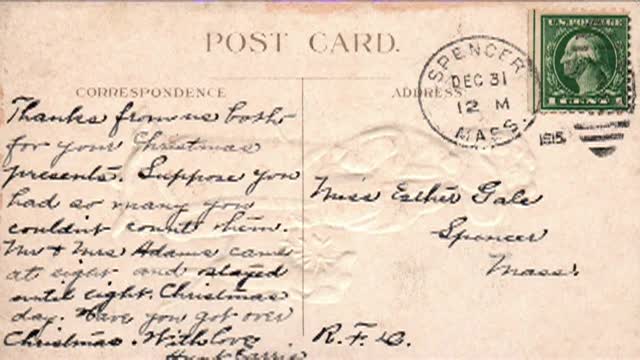 POST CARD.
CORRESPONDENCE
ADDRESS.
Thanks from us both
for your Christmas
presents. Suppose you
had so many you
couldn't count them.
Mr & Mrs Adams came
at eight and stayed
until eight. Christmas
day. Have you got over
Christmas. With love
Aunt Carrie
SPENCER
DEC 31
12 M
MASS.
1915
U.S. POSTAGE
1 CENT 1
Miss Esther Gale
Spencer
Mass.
R.F.D.